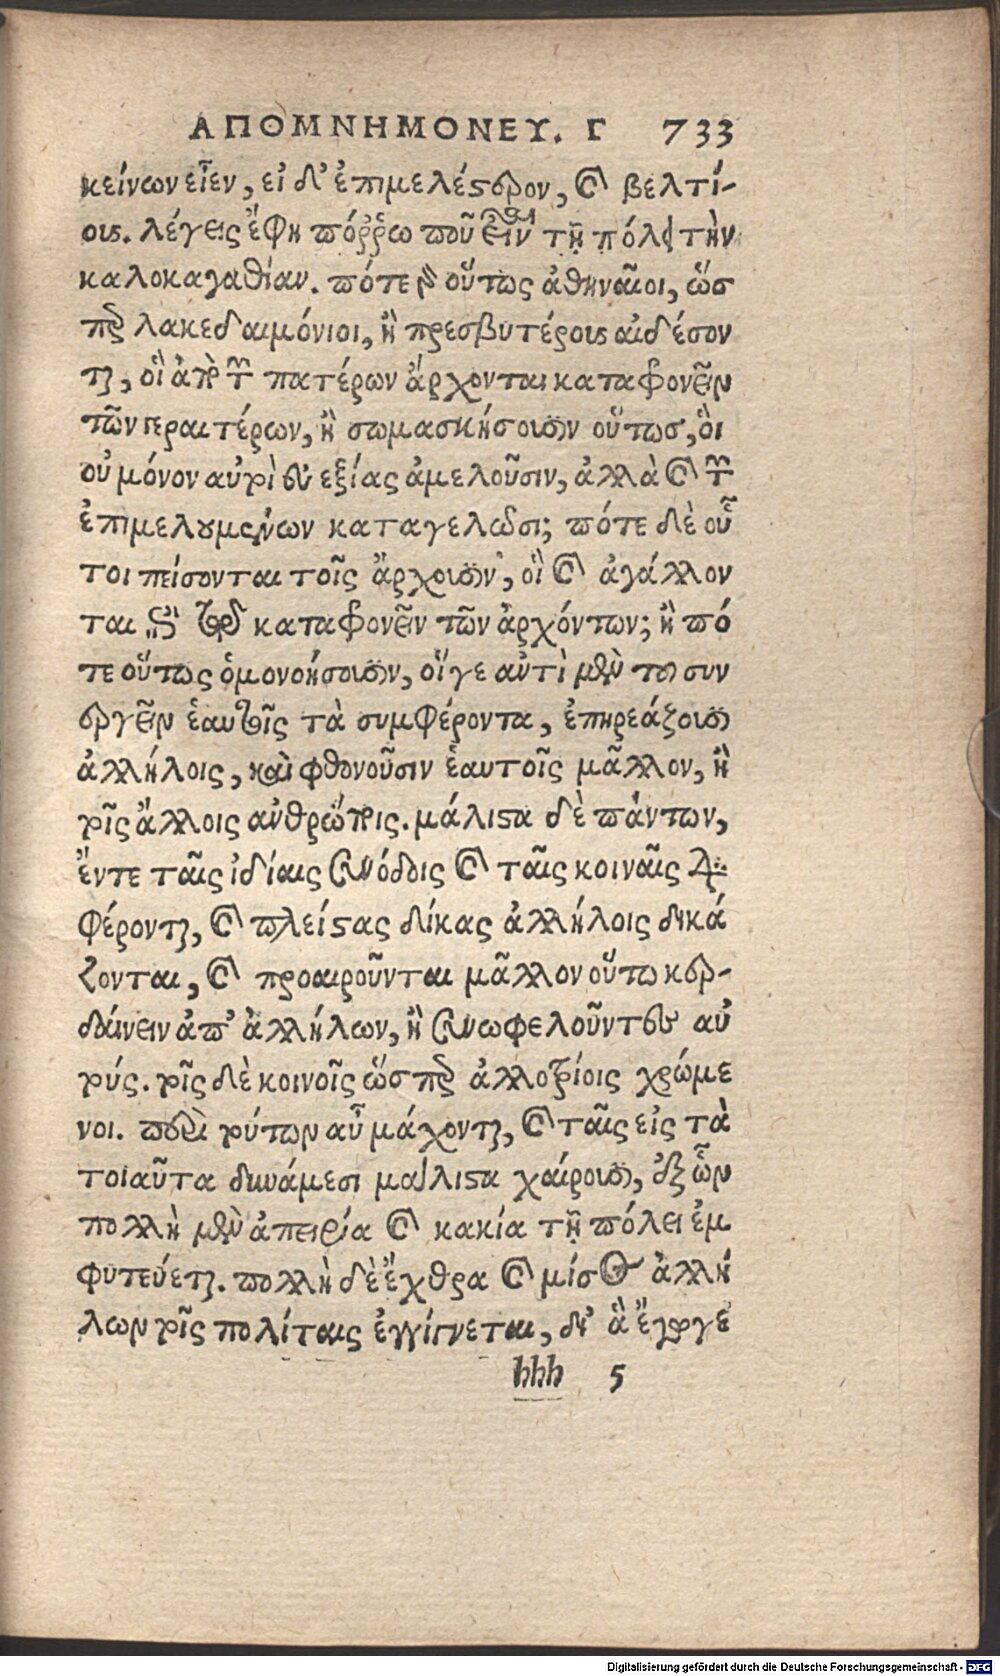 ΑΠΟΜΝΗΜΟΝΕΥ. Γ 733
κείνων εἶεν, εἰ δ' ἐπιμελέστερον, καὶ βελτί-
ους. λέγεις ἔφη πόῤῥω που εἶναι τῇ πόλει τὴν
καλοκαγαθίαν. πότε γὰρ οὕτως ἀθηναῖοι, ὥσ
περ λακεδαιμόνιοι, ἢ πρεσβυτέρους αἰδέσον
ται, οἳ ἀπὸ τῶν πατέρων ἄρχονται καταφρονεῖν
τῶν γεραιτέρων, ἢ σωμασκήσουσιν οὕτως, οἳ
οὐ μόνον αὐτοὶ εὐεξίας ἀμελοῦσιν, ἀλλὰ καὶ τῶν
ἐπιμελουμένων καταγελῶσι; πότε δὲ οὗ
τοι πείσονται τοῖς ἄρχουσιν, οἳ καὶ ἀγάλλον
ται ἐπὶ τῷ καταφρονεῖν τῶν ἀρχόντων; ἢ πό
τε οὕτως ὁμονοήσουσιν, οἵ γε αὐτὶ μὲν τοῦ συν
εργεῖν ἑαυτοῖς τὰ συμφέροντα, ἐπηρεάζουσιν
ἀλλήλοις, καὶ φθονοῦσιν ἑαυτοῖς μᾶλλον, ἢ
τοῖς ἄλλοις ἀνθρώποις. μάλιστα δὲ πάντων,
ἔν τε ταῖς ἰδίαις συνόδοις καὶ ταῖς κοιναῖς δια
φέρονται, καὶ πλείστας δίκας ἀλλήλοις δικά
ζονται, καὶ προαιροῦνται μᾶλλον οὕτω κερ-
δαίνειν ἀπ' ἀλλήλων, ἢ συνωφελοῦντες αὑ
τούς. τοῖς δὲ κοινοῖς ὥσπερ ἀλλοτρίοις χρώμε
νοι. περὶ τούτων αὖ μάχονται, καὶ ταῖς εἰς τὰ
τοιαῦτα δυνάμεσι μάλιστα χαίρουσιν, ἐξ ὧν
πολλὴ μὲν ἀπειρία καὶ κακία τῇ πόλει ἐμ
φυτεύεται. πολλὴ δὲ ἔχθρα καὶ μῖσος ἀλλή
λων τοῖς πολίταις ἐγγίγνεται, δι' ἃ ἔγωγε
hhh 5
Digitalisierung gefördert durch die Deutsche Forschungsgemeinschaft - DFG